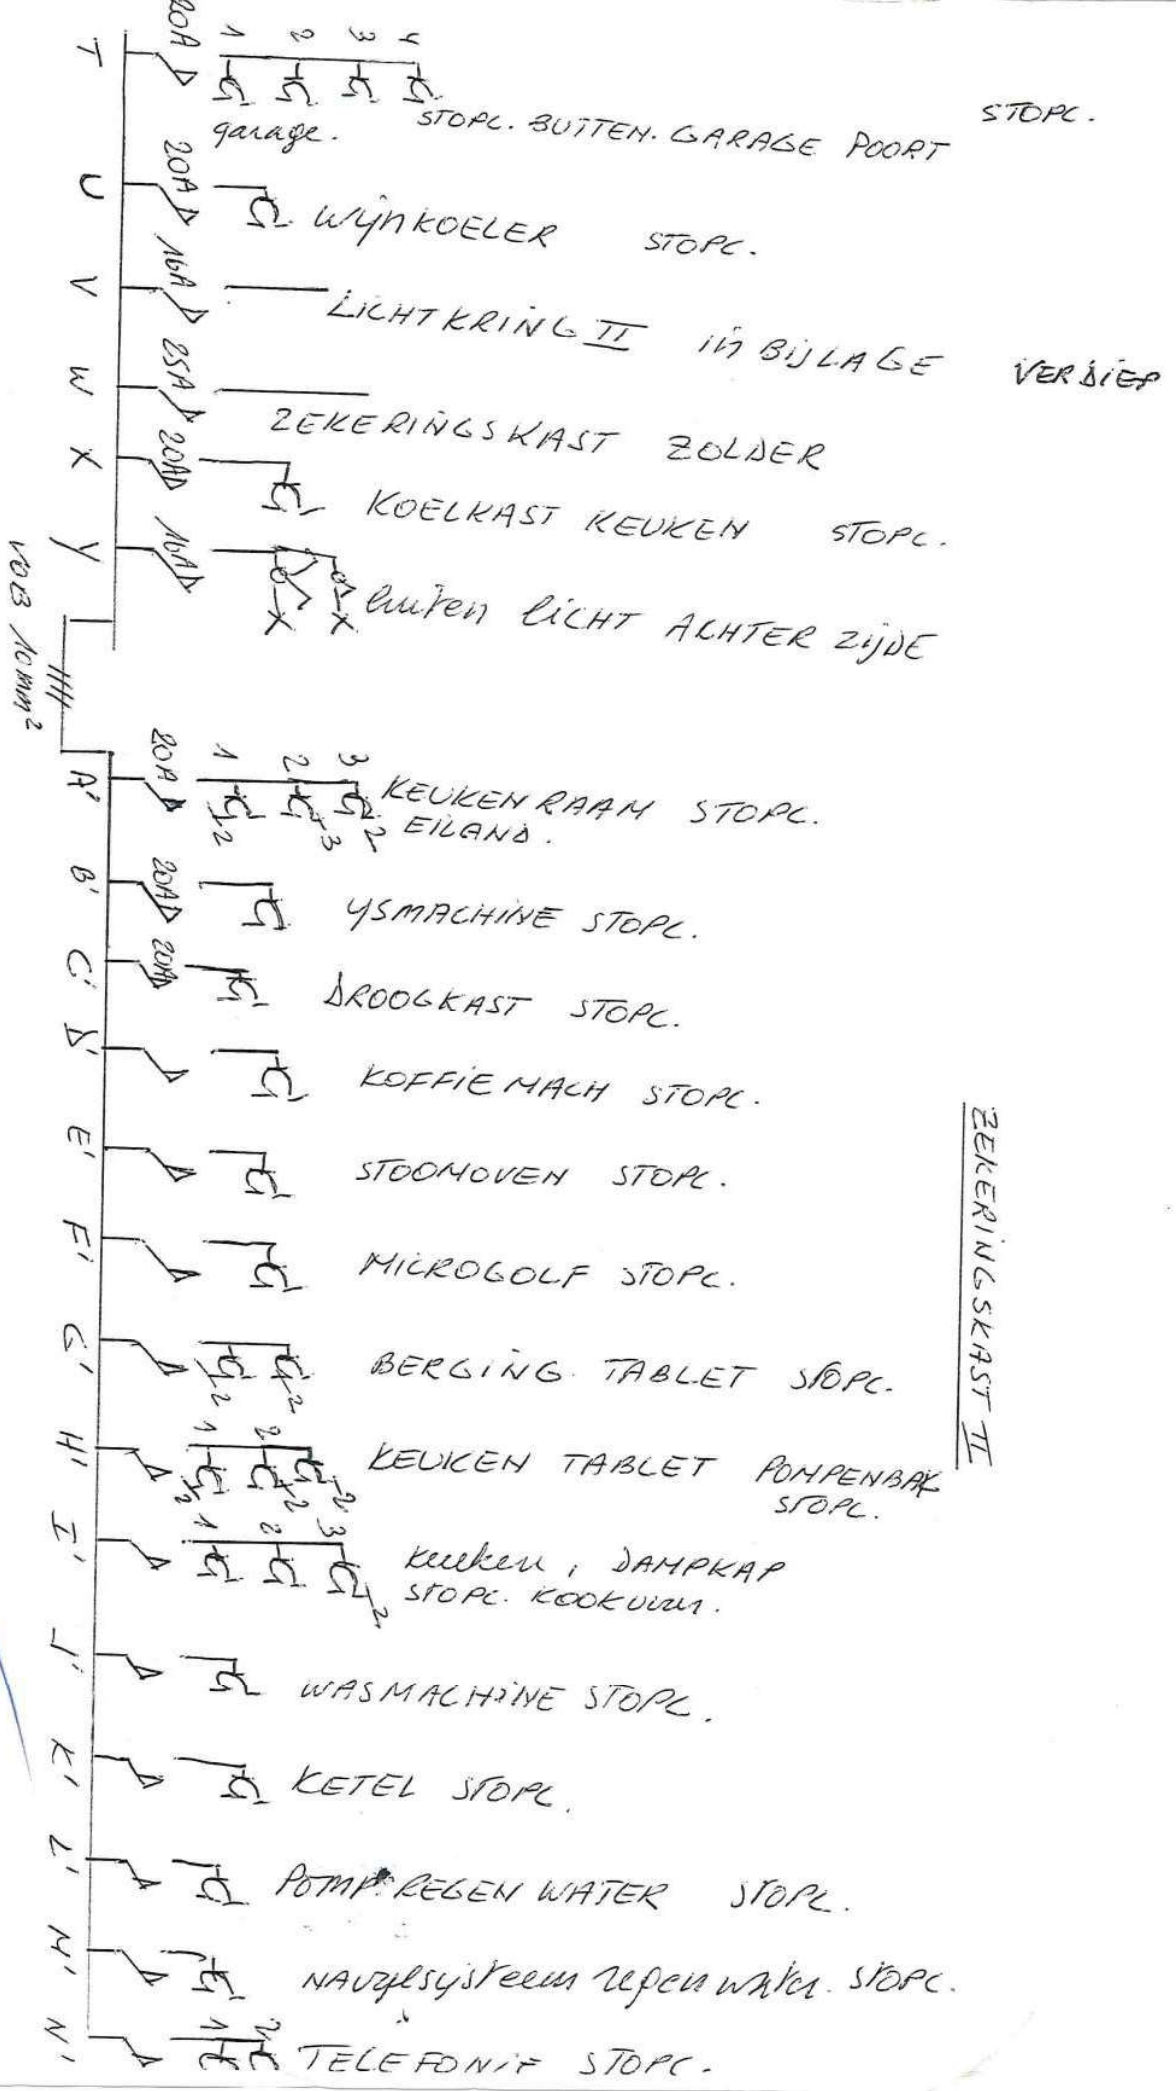 T 20A 1 2 3 4
garage. STOPC. BUITEN. GARAGE POORT STOPC.
U 20A WijnKOELER STOPC.
V 16A LICHTKRING II in BIJLAGE VERDIEP
W 25A ZEKERINGSKAST ZOLDER
X 20A KOELKAST KEUKEN STOPC.
Y 16A buiten LICHT ACHTER ZIJDE
VOB 10mm²
ZEKERINGSKAST II
A' 20A 1 2 3 KEUKEN RAAM STOPC.
2 3 2 EILAND.
B' 20A YSMACHINE STOPC.
C' 20A DROOGKAST STOPC.
D' KOFFIE MACH STOPC.
E' STOOMOVEN STOPC.
F' MICROGOLF STOPC.
G' 2 2 BERGING. TABLET STOPC.
H' 1 2 KEUKEN TABLET POMPENBAK
2 2 2 STOPC.
I' 1 2 3 keuken, DAMPKAP
2 STOPC. KOOKVUUR.
J' WASMACHINE STOPC.
K' KETEL STOPC.
L' POMP. REGEN WATER STOPC.
M' NAVULsysteem regenwater. STOPC.
N' 1 2 TELEFONIE STOPC.